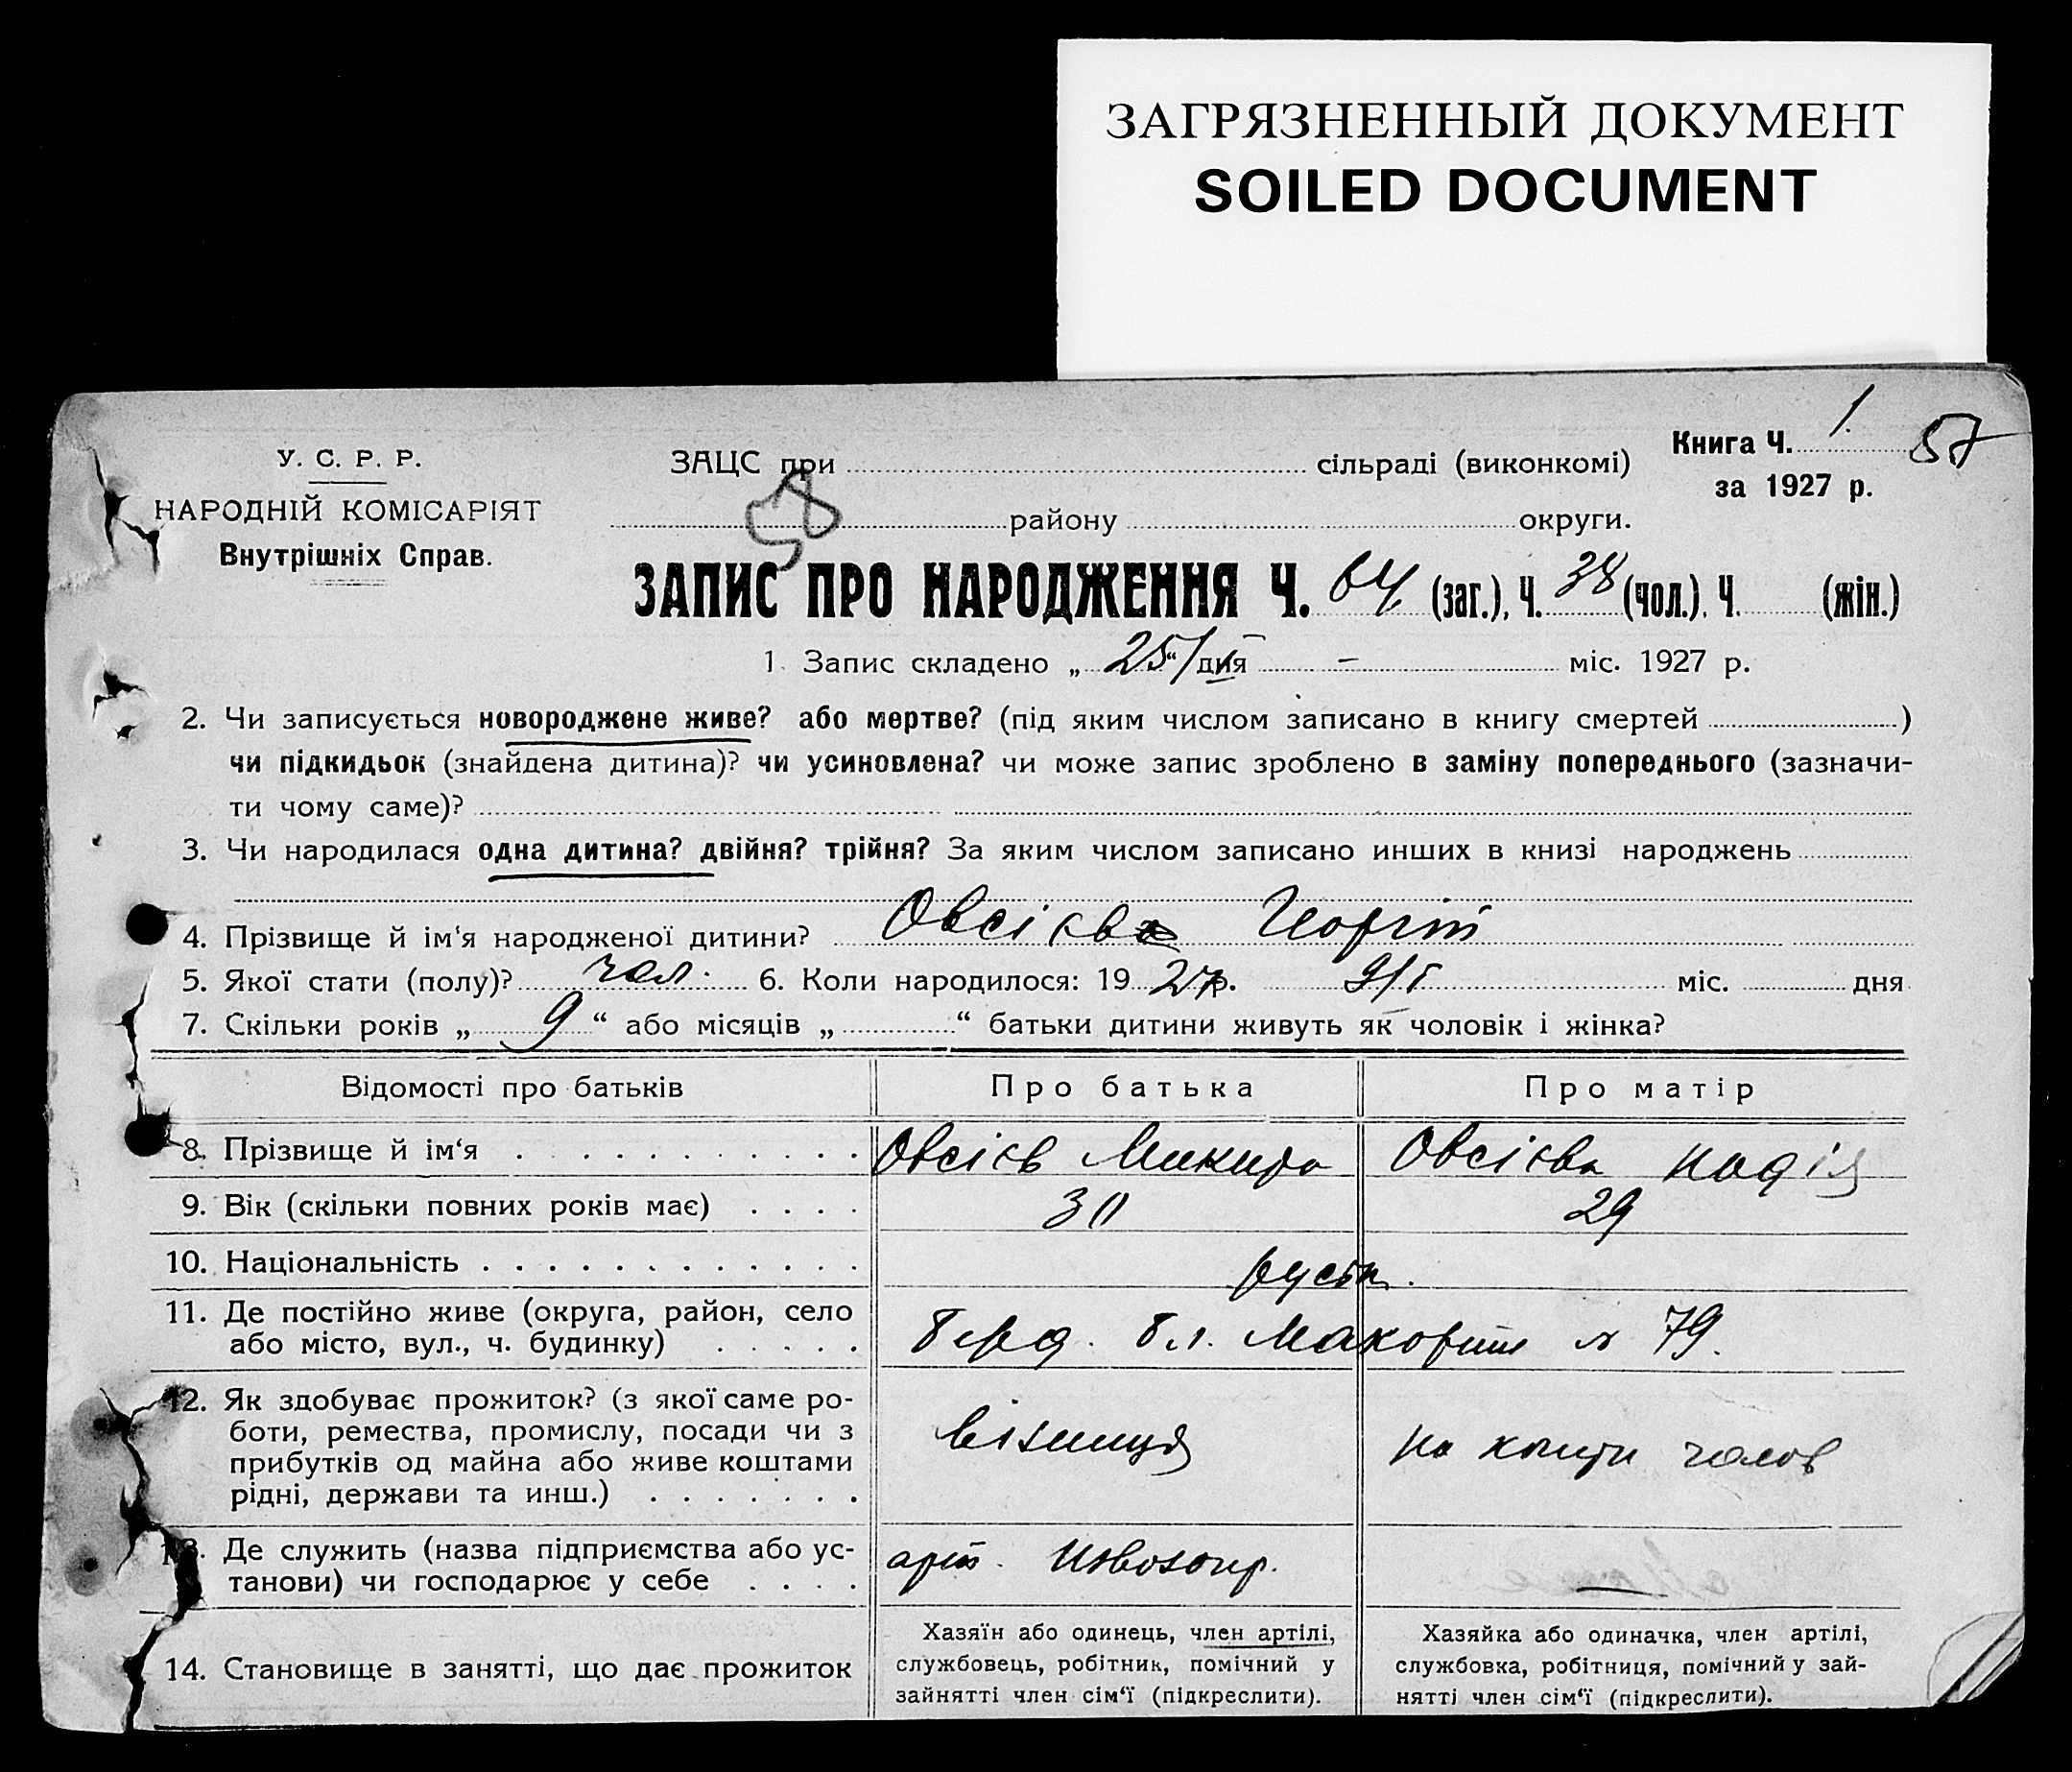 ЗАГРЯЗНЕННЫЙ ДОКУМЕНТ
SOILED DOCUMENT
У. С. Р. Р.
НАРОДНІЙ КОМІСАРІЯТ
Внутрішніх Справ.
ЗАЦС при сільраді (виконкомі)
Книга Ч. 1. 57
за 1927 р.
58 району округи.
ЗАПИС ПРО НАРОДЖЕННЯ Ч. 64 (заг.), Ч. 38 (чол.), Ч. (жін.)
1. Запис складено „ 25/I “ дня — міс. 1927 р.
2. Чи записується новороджене живе? або мертве? (під яким числом записано в книгу смертей )
чи підкидьок (знайдена дитина)? чи усиновлена? чи може запис зроблено в заміну попереднього (зазначи-
ти чому саме)?
3. Чи народилася одна дитина? двійня? трійня? За яким числом записано инших в книзі народжень
4. Прізвище й ім‘я народженої дитини? Овсієв Георгій
5. Якої стати (полу)? чол. 6. Коли народилося: 19 27 р. 9/I міс. дня
7. Скільки років „ 9 “ або місяців „ “ батьки дитини живуть як чоловік і жінка?
Відомості про батьків Про батька Про матір
8. Прізвище й ім‘я Овсієв Овсієва Надія
9. Вік (скільки повних років має) 30 29
10. Національність
11. Де постійно живе (округа, район, село
або місто, вул., ч. будинку) 79.
12. Як здобуває прожиток? (з якої саме ро-
боти, ремества, промислу, посади чи з
прибутків од майна або живе коштами
рідні, держави та инш.) візниця на кошти чолов
13. Де служить (назва підприємства або ус-
танови) чи господарює у себе арт. —
14. Становище в занятті, що дає прожиток
Хазяїн або одинець, член артілі,
службовець, робітник, помічний у
зайнятті член сім‘ї (підкреслити).
Хазяйка або одиначка, член артілі,
службовка, робітниця, помічний у зай-
нятті член сім‘ї (підкреслити).